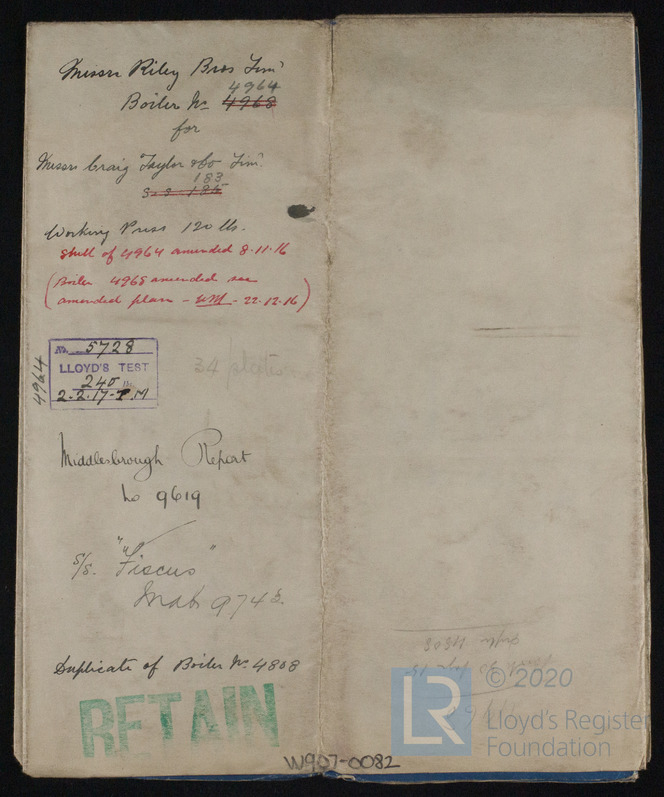 Messrs Riley Bros Limd
4964
Boiler No 4968
for
Messrs Craig Taylor & Co Limd
183
S.S. 185
Working Press 120 lbs.
Shell of 4964 amended 8.11.16
(Boiler 4965 amended see
amended plan - - 22.12.16)
No. 5728
LLOYD'S TEST
240
2.2.17
4964
34 plates
Middlesbrough Report
No 9619
S/S. "Fiscus"
Mab 9745.
Duplicate of Boiler No. 4808
RETAIN
W907-0082
4808
LR © 2020
Lloyd's Register
Foundation